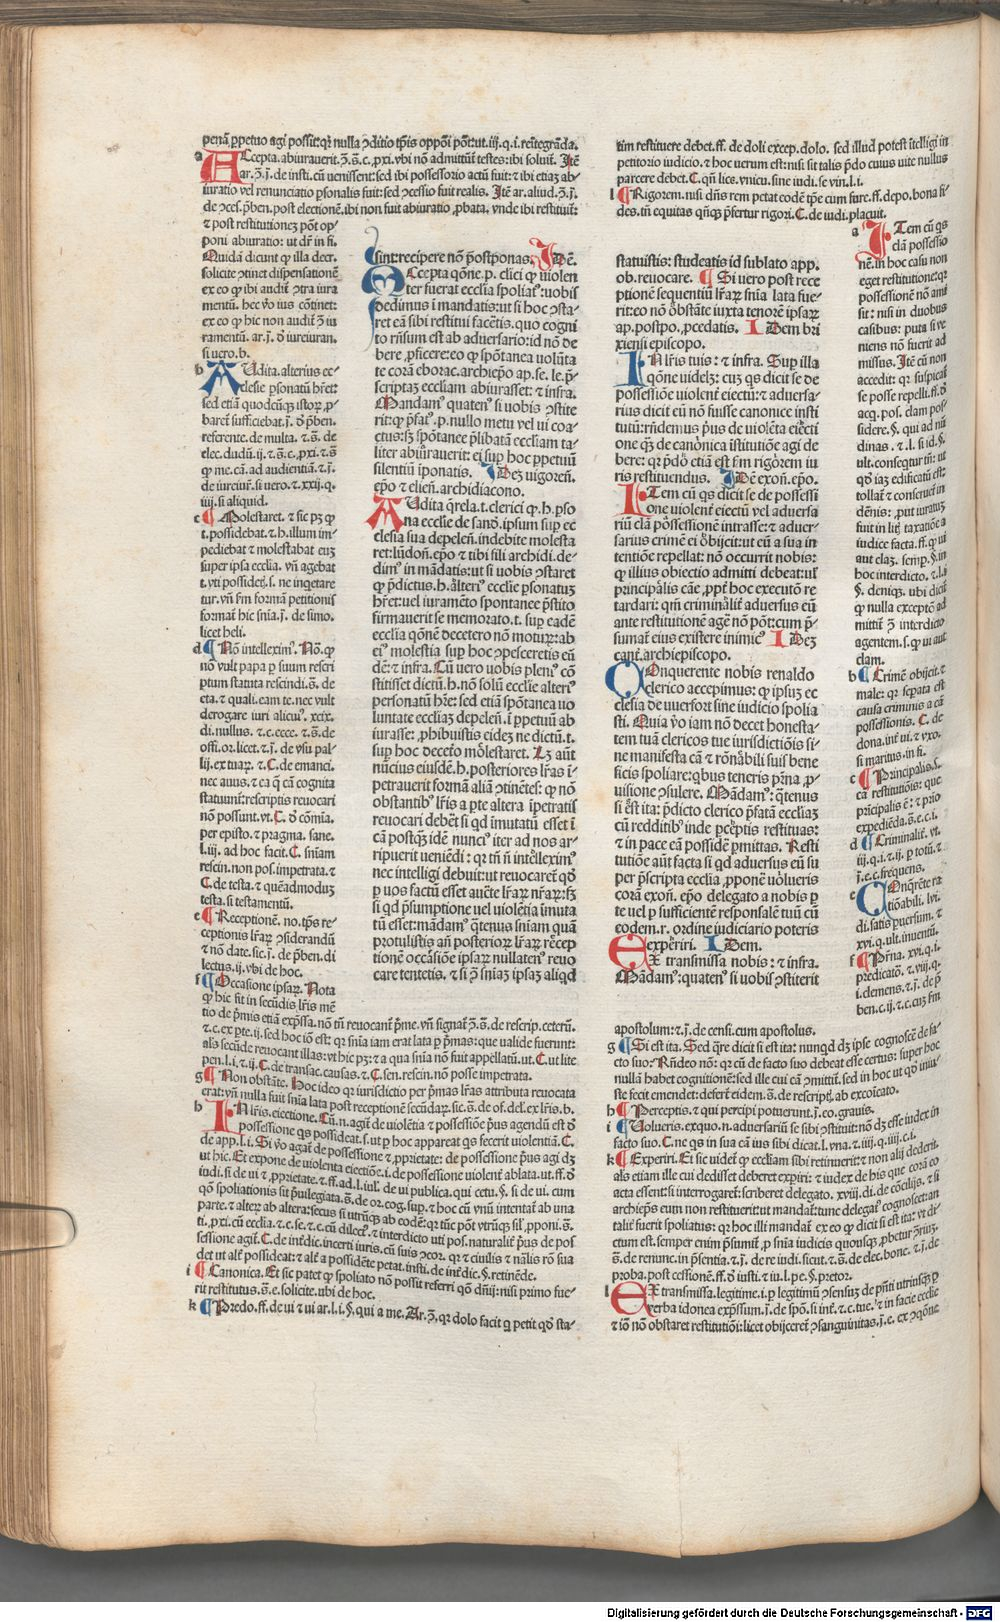 penā ꝑpetuo agi possit: qꝛ nulla ↄditio tp̄is oppōi pōt: ut. iij. q. i. reītegrāda.
a Accepta. abiurauerit. ꝫ. s. c. ꝓxi. vbi nō admittūt testes: ibi soluit. Itē
ar. ꝫ. j. de insti. cū venissent: sed ibi possessorio actū fuit: ⁊ ibi etiaꝫ ab⸗
iuratio vel renunciatio ꝑsonalis fuit: sed ↄcessio fuit realis. Itē ar. aliud. ꝫ. j.
de ↄces. p̄ben. post electionē. ibi non fuit abiuratio ꝓbata. vnde ibi restituit:
⁊ post restitutioneꝫ pōt op⸗
poni abiuratio: ut dr̄ in fi.
Quidā dicunt ꝙ illa decr.
solicite ↄtinet dispensationē
ex eo ꝙ ibi audiī ↄtra iura
mentū. hec v̄o ius cōtinet:
ex eo ꝙ hic non audiī ꝫ iu
ramentū. ar. j. d̄ iureiuran.
si vero. b.
b Audita. alterius ec⸗
clesie ꝑsonatū hr̄et:
sed etiā quodcūqꝫ istoꝝ ꝓ⸗
baret sufficiebat. j. d̄ p̄ben.
referente. de multa. ⁊. s. de
elec. dudū. ij. ⁊. s. c. ꝓxi. ⁊. s
ꝙ me. cā. ad audientiā. ⁊. j.
de iureiur. si vero. ⁊. xxij. q.
iiij. si aliquid.
c ¶ Molestaret. ⁊ sic pꝫ ꝙ
t. possidebat. ⁊. h. illum im⸗
pediebat ⁊ molestabat euꝫ
super ipsa ecclia. vn̄ agebat
t. vti possidetꝭ. s. ne inqetare
tur. vn̄ fm formā petitionis
formāt hic snīa. j. de simo.
licet heli.
d ¶ Nō intelleximꝰ. Nō. ꝙ
nō vult papa ꝑ suum rescri
ptum statuta rescindi. s. de
eta. ⁊ quali. eam te. nec vult
derogare iuri alicuiꝰ. xcix.
di. nullus. ⁊. c. ecce. ⁊. s. de
offi. or. licet. ⁊. j. de vsu pal⸗
lij. ex tuaꝝ. ⁊. C. de emanci.
nec auus. ⁊ ea q̄ cā cognita
statuunī: rescriptis reuocari
nō possunt. vt. C. d̄ cōmīa.
per episto. ⁊ pragma. sane.
l. iij. ad hoc facit. C. snīam
rescin. non pos. impetrata. ⁊
C. de testa. ⁊ quēadmoduꝫ
testa. si testamentū.
e ¶ Receptionē. no. tp̄s re⸗
ceptionis lr̄aꝝ ↄsiderandū
⁊ nō date. sic. j. de p̄ben. di
lectus. ij. vbi de hoc.
f ¶ Occasione ipsaꝝ. Nota
ꝙ hic fit in secūdis lr̄is mē
tio de p̄mis etiā exp̄ssa. nō tn̄ reuocant̄ p̄me. vn̄ signat̄ ꝫ. s. de rescrip. ceterū.
⁊. c. ex pte. ij. sed hoc iō est: qꝛ snīa iam erat lata ꝑ p̄mas: que valide fuerunt:
als̄ secūde reuocant illas: vt hic pꝫ: ⁊ a qua snīa nō fuit appellatū. ut. C. ut lite
pen. l. i. ⁊. ij. C. de transac. causas. ⁊. C. sen. rescin. nō posse impetrata.
g ¶ Non obstāte. Hoc ideo qꝛ iurisdictio per p̄mas lr̄as attributa reuocata
erat: vn̄ nulla fuit snīa lata post receptionē secūdaꝝ. sic. s. de of. del. ex lr̄is. b.
h In lr̄is. eiectione. Cū. n. agit̄ de violētia ⁊ possessiōe p̄us agendū est d̄
possessione qs possideat. s. ut ꝑ hoc appareat qs fecerit violentiā. C.
de app. l. i. Si v̄o agat̄ de possessione ⁊ ꝓprietate: de possessione p̄us agi dꝫ
ut hic. Et expone de violenta eiectiōe. i. de possessione violent̄ ablata. ut. ff. d̄
iudi. si de ui ⁊ ꝓprietate. ⁊. ff. ad. l. iul. de ui publica. qui cetu. §. si de ui. cum
qō spoliationis sit p̄uilegiata. s. de or. cog. sup. ⁊ hoc cū vnū intentat̄ ab una
parte. ⁊ alteꝝ ab altera: secus si utrūqꝫ ab eodē: qꝛ tūc pōt vtrūqꝫ sil̄ ꝓponi. s.
ti. ꝓxi. cū ecclia. ⁊. c. se. ⁊. c. cū dilecꝰ. ⁊ interdicto uti pos. naturalit̄ p̄us de pos
sessione agit̄. C. de int̄dic. incerti iuris. cū suis ↄcor. qꝛ ⁊ ciuilis ⁊ nālis rō sua
det ut alt̄ possideat: ⁊ alt̄ a possidēte petat. insti. de int̄dic. §. retinēde.
i ¶ Canonica. Et sic patet ꝙ spoliato nō possit referri qō dn̄ij: nisi primo fue⸗
rit restitutus. s. e. solicite. vbi de hoc.
k ¶ Predo. ff. de ui ⁊ ui ar. l. i. §. qui a me. Ar. ꝫ. qꝛ dolo facit q petit qō sta⸗
sint: recipere nō p̄ostponas. Idē.
Accepta qōne. p. clici ꝙ violen
ter fuerat ecclia spoliatꝰ: uobis
dedimus ī mandatis: ut si hoc ↄsta⸗
ret eā sibi restitui facetis. quo cogni
to rn̄sum est ab aduersario: id nō de
bere ꝓficere: eo ꝙ spōtanea volūta
te corā eborac. archiepō ap. se. le. p̄⸗
scriptaꝫ eccliam abiurasset: ⁊ infra.
Mandamꝰ quatenꝰ si uobis ↄstite
rit: ꝙ p̄fatꝰ. p. nullo metu vel ui coa⸗
ctus: sꝫ spōtanee p̄libatā eccliam ta⸗
liter abiurauerit: ei sup hoc ꝑpetuū
silentiū īponatis. Ideꝫ vigoreñ.
epō ⁊ elieñ. archidiacono.
Audita q̄rela. t. clerici ꝙ. h. ꝑso
na ecclie de sand. ipsum sup ec
clesia sua depeleñ. indebite molesta
ret: lūdoñ. epō ⁊ tibi sili archidi. de⸗
dimꝰ in mādatis: ut si uobis ↄstaret
ꝙ p̄dictus. h. ālteriꝰ ecclie ꝑsonatuꝫ
hr̄et: uel iuramēto spontance p̄stito
firmauerit se memorato. t. sup eadē
ecclia qōnē decetero nō moturꝰ: ab
eiꝰ molestia sup hoc ↄpesceretis eū
dē: ⁊ infra. Cū vero uobis pleniꝰ cō
stitisset dictū. h. nō solū ecclie alteriꝰ
personatū hr̄e: sed etiā spōtanea uo
luntate eccliaꝫ depeleñ. ī ꝑpetuū ab
iurasse: ꝓhibuistis eideꝫ ne dictū. t.
sup hoc decet̄o mōlestaret. Lꝫ aūt
nūcius eiusdē. h. posteriores lr̄as ī⸗
petrauerit formā aliā ↄtinētes: ꝙ nō
obstantibꝰ lr̄is a pte altera īpetratis
reuocari debēt si qd īmutatū esset ī
cā postqꝫ idē nunciꝰ iter ad nos ar⸗
ripuerit ueniēdi: qꝛ tn̄ ñ intelleximꝰ
nec intelligi debuit: ut reuocaret̄ qō
ꝑ uos factū esset auc̄te lr̄aꝝ nr̄aꝝ: sꝫ
si qd p̄sumptione uel uiolētia īmuta
tū esset: mādamꝰ q̄tenus snīam quā
protulistis añ posterioꝝ lr̄aꝝ rēcep
tionē occāsiōe ipsaꝝ nullatenꝰ reuo
care tentetis. ⁊ si ꝫ snīaꝫ ipsaꝫ aliqd
tim restituere debet. ff. de doli excep. dolo. sed illud potest ītelligi in
petitorio iudicio. ⁊ hoc uerum est: nisi sit talis p̄do cuius uite nullus
parcere debet. C. qn̄ lice. vnicu. sine iudi. se vin. l. i.
l ¶ Rigorem. nisi dn̄s rem petat eodē tp̄e cum fure. ff. depo. bona fi⸗
des. tn̄ equitas qn̄qꝫ p̄fertur rigori. C. de iudi. placuit.
statuistis: studeatis id sublato app.
ob. reuocare. ¶ Si vero post rece
ptionē sequentiū lr̄aꝝ snīa lata fue⸗
rit: eo nō obstāte iuxta tenorē ipsaꝝ
ap. postpo. ꝓcedatis. Idem bri
xiensi episcopo.
In lr̄is tuis: ⁊ infra. Sup illa
qōne uidelꝫ: cuꝫ qs dicit se de
possessiōe violent eiectū: ⁊ aduersa⸗
rius dicit eū nō fuisse canonice insti
tutū: rn̄demus p̄us de violēta eiēcti
one qꝫ de canōnica īstitutiōe agi de
bere: qꝛ p̄dō etiā est fm rigōrem iu
ris restituendus. Idē exoñ. epo.
Item cū qs dicit se de possessi
one violent eiectū vel aduersa
riū clam possessionē intrasse: ⁊ aduer⸗
sarius crimē ei obijcit: ut eū a sua in
tentiōe repellat: nō occurrit nobis:
ꝙ illius obiectio admitti debeat: ul̄
principalis cāe ꝓpt̄ hoc executō re
tardari: qm̄ criminalit̄ aduersus eū
ante restitutionē agē nō pōt: cum p̄⸗
sumat̄ eius existere inimicꝰ. Ideꝫ
cant. archiepiscopo.
Conquerente nobis renaldo
clerico accepimus: ꝙ ipsuꝫ ec
clesia de uuerfort sine iudicio spolia
sti. Quia v̄o iam nō decet honesta⸗
tem tuā clericos tue iurisdictiōis si⸗
ne manifesta cā ⁊ rōnabili suis bene
ficis spoliare: qbus teneris pr̄na ꝓ⸗
uisione ↄsulere. Mādamꝰ: q̄tenus
si ēst ita: p̄dicto clerico p̄fatā eccliaꝫ
cū redditibꝰ inde pceptis restituas:
⁊ in pace eā possidē p̄mittas. Resti
tutiōe aūt facta si qd aduersus eū su
per p̄scripta ecclia ꝓponē uolueris
corā exoñ. epō delegato a nobis ꝑ
te uel ꝑ sufficientē responsalē tuū cū
eodem. r. ordine iudiciario poteris
experiri. Idem.
Ex transmissa nobis: ⁊ infra.
Mādamꝰ: quatenꝰ si uobis ↄstiterit
a Item cū qs
clā possessio
nē. in hoc casu non
eget restitutione: qꝛ
possessionē nō ami
sit: nisi in duobus
casibus: puta si ve
niens nō fuerit ad
missus. Itē cū non
accedit: qꝛ suspicat̄
se posse repelli. ff. d̄
acq. pos. dam pos⸗
sidere. §. qui ad nū
dinas. ⁊. l. si id. §.
ult. consequit̄ tn̄: ut
qō iaꝫ edificatū est:
tollat̄ ⁊ conseruet̄ in
dēnis: put iuratuꝫ
fuit in lit̄ taxatiōe a
iudice facta. ff. ꝙ ui
aut claꝫ. semp. §. in
hoc interdicto. ⁊. l. i.
§. deniqꝫ. ubi dicit̄
ꝙ nulla exceptō ad
mittit̄ ꝫ interdicto
agentem. s. ꝙ ui aut
clam.
b ¶ Crimē obijcit. ⁊
male: qꝛ sepata est
causa criminis a cā
possessionis. C. de
dona. int̄ ui. ⁊ vxo.
si maritus. in fi.
c ¶ Principalis. §.
cā restitutōis: que
pricipalis ē: ⁊ prio
expediēda. s. e. c. i.
d ¶ Criminalit̄. vt.
iij. q. i. ⁊. ij. ꝑ totū. ⁊
j. e. c. frequens.
e Conq̄rēte ra
tiōabili. lvi.
di. satis ꝑuersum. ⁊
xvi. q. ult. inuentū.
f ¶ Pr̄na. xvi. q. i.
predicatō. ⁊. viij. q.
i. clemens. ⁊. j. de p̄
ben. c. ij. ⁊. c. cuꝫ fm
apostolum: ⁊. j. de censi. cum apostolus.
g ¶ Si est ita. Sed q̄re dicit si est ita: nunqd dꝫ ipse cognoscē de fa⸗
cto suo: Rn̄deo nō: qꝛ cū de facto suo debeat esse certus: super hoc
nullā habet cognitionē: sed ille cui cā ↄmittit̄. sed in hoc ut qō iniu⸗
ste fecit emendet: defert eidem. s. de rescript. ab excoīcato.
h ¶ Perceptis. ⁊ qui percipi potuerunt. j. eo. grauis.
i ¶ Uolueris. ex quo. n. aduersariū se sibi ↄstituit: nō dꝫ esse iudex in
facto suo. C. ne qs in sua cā ius sibi dicat. l. vna. ⁊. iiij. q. iiij. c. i.
k ¶ Experiri. Et sic videt̄ ꝙ eccliam sibi retinuerit: ⁊ non alij dederit.
als̄ etiam ille cui dedisset deberet expiri: ⁊ iudex de his que corā eo
acta essent: si interrogaret̄: scriberet delegato. xviij. di. de cōcilijs. ⁊ si
archiep̄s eum non restituerit: ut mandat̄: tunc delegatꝰ cognoscet: an
talit̄ fuerit spoliatus: qꝛ hoc illi mandat̄ ex eo ꝙ dicit si est ita: vt di⸗
ctum est. semper enim p̄sumit̄ ꝓ snīa iudicis quousqꝫ ꝓbetur ↄ̄riuꝫ.
s. de renunc. in p̄sentia. ⁊. j. de re iudi. sicut. ⁊. s. de elec. bone. ⁊. j. de
proba. post cessionē. ff. d̄ iusti. ⁊ iu. l. pe. §. pretor.
l Ex transmissa. legitime. i. ꝑ legitimū ↄsensuꝫ de p̄nti utriusqꝫ ꝑ
verba idonea exp̄ssum. j. de spō. si int̄. ⁊. c. tue. ⁊ in facie ecclie
⁊ iō nō obstaret restitutiōi: licet obijceret̄ ↄsanguinitas. j. e. ex ↄqōne
Digitalisierung gefördert durch die Deutsche Forschungsgemeinschaft - DFG